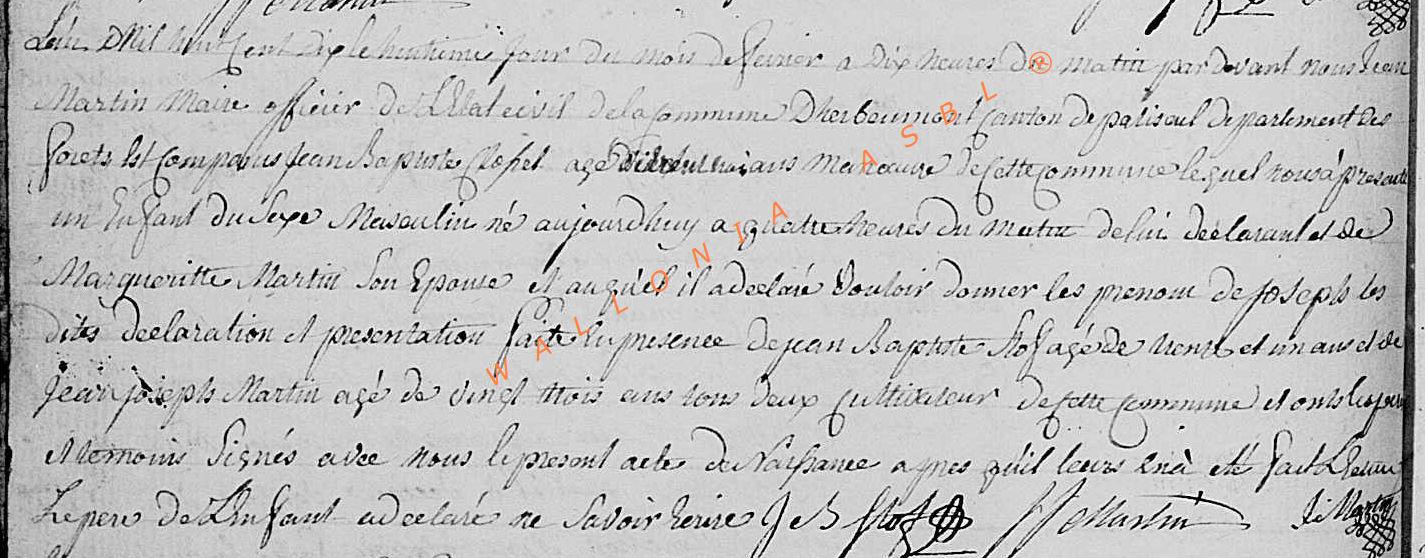 L'an Mil huit Cent dix le huitieme jour du mois de fevrier a dix heures du matin par devant nous Jean
Martin Maire officier de L'Etat civil de la commune D'herbeumont Canton de paliseul departement des
forets Est Comparus Jean Baptiste age ans Manoeuvre de Cette Commune lequel nous à presenté
un Enfant du Sexe Masculin né aujourdhuy a quatre heures du matin de lui declarant et de
Margueritte Martin Son Epouse et auquel il a declaré Vouloir donner les prenom de joseph les
dites declaration et presentation faite En presence de jean Baptiste Stof agé de trente et un ans et de
Jean joseph Martin agé de vingt trois ans tous deux Cultivateur de Cette Commune et ont les
et temoins Signés avec nous le present acte de Naissance apres qu'il leurs En à eté fait
Le pere de L'Enfant a declaré ne Savoir Ecrire J B Stof JJ Martin J Martin
WALLONIA ASBL ®